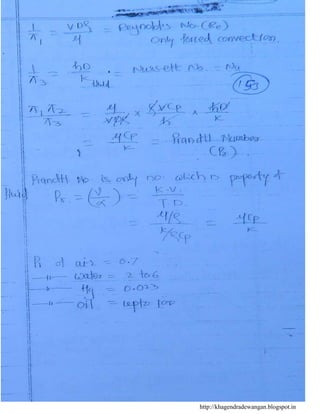 1/π₁ = VDρ/μ = Reynold's No. (Re)
Only forced convection.
1/π₃ = hD/k fluid = Nusselt No. = Nu
153
π₁π₂/π₃ = μ/VDρ × ρVCp/h × hD/k
= μCp/k = Prandtl Number
(Pr).
Prandtl No. is only no. which is property of
fluid Pr = (ν/α) = K.V./T.D.
= μ/ρ / k/ρCp = μCp/k
Pr of air = 0.7
—"— water = 2 to 6
—"— Hg = 0.023
—"— oil = upto 100
http://khagendradewangan.blogspot.in